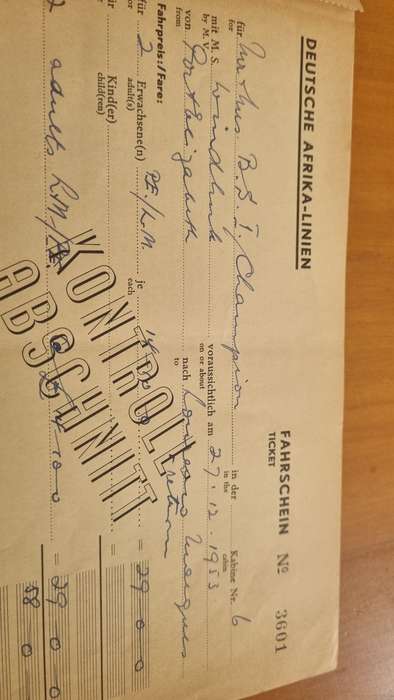 DEUTSCHE AFRIKA-LINIEN
FAHRSCHEIN Nº 3601
TICKET
für B.S.I. Champion in der Kabine Nr. 6
for in the cabin
mit M. S. Windhuk voraussichtlich am 27.12.1953.
by M. V. on or about
von Port Elizabeth nach Lourenco Marques
from to return
Fahrpreis:/Fare:
für 2 Erwachsene(n) P.E./L.M. je = 29 0 0
for adult(s) each
für Kind(er) =
child(ren)
2 adults L.M/P.E. = 29 0 0
58 0
KONTROLL
ABSCHNITT